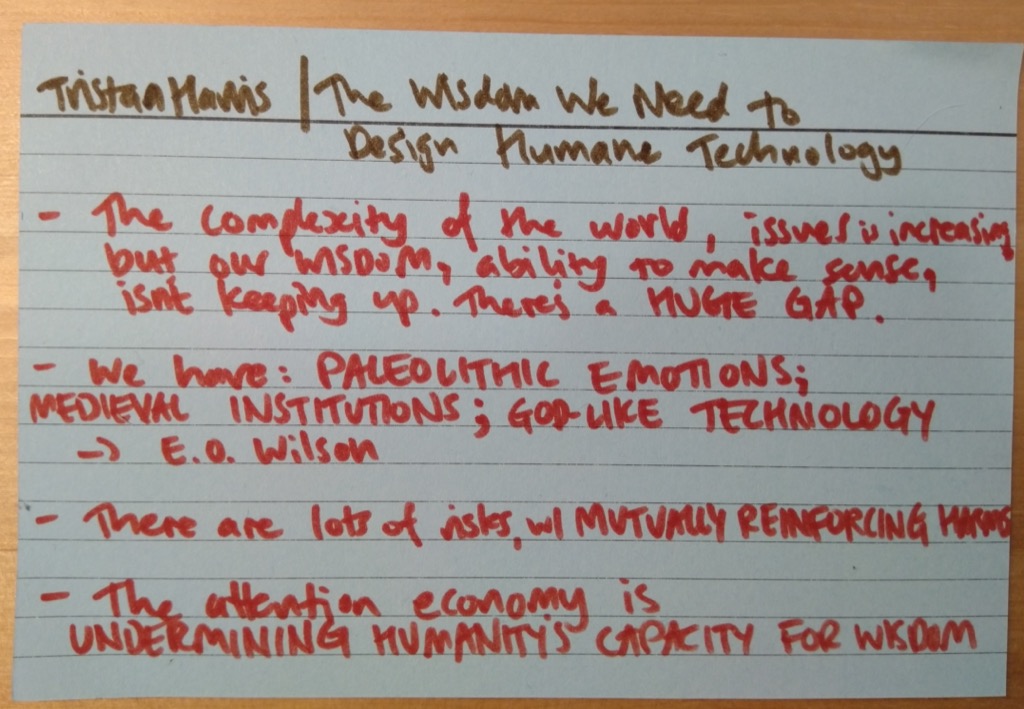 Tristan Harris | The Wisdom We Need to
Design Humane Technology
- The complexity of the world, issues is increasing,
but our WISDOM, ability to make sense,
isn't keeping up. There's a HUGE GAP.
- We have: PALEOLITHIC EMOTIONS;
MEDIEVAL INSTITUTIONS; GOD-LIKE TECHNOLOGY
-> E.O. Wilson
- There are lots of risks, w/ MUTUALLY REINFORCING HARMS
- The attention economy is
UNDERMINING HUMANITY'S CAPACITY FOR WISDOM